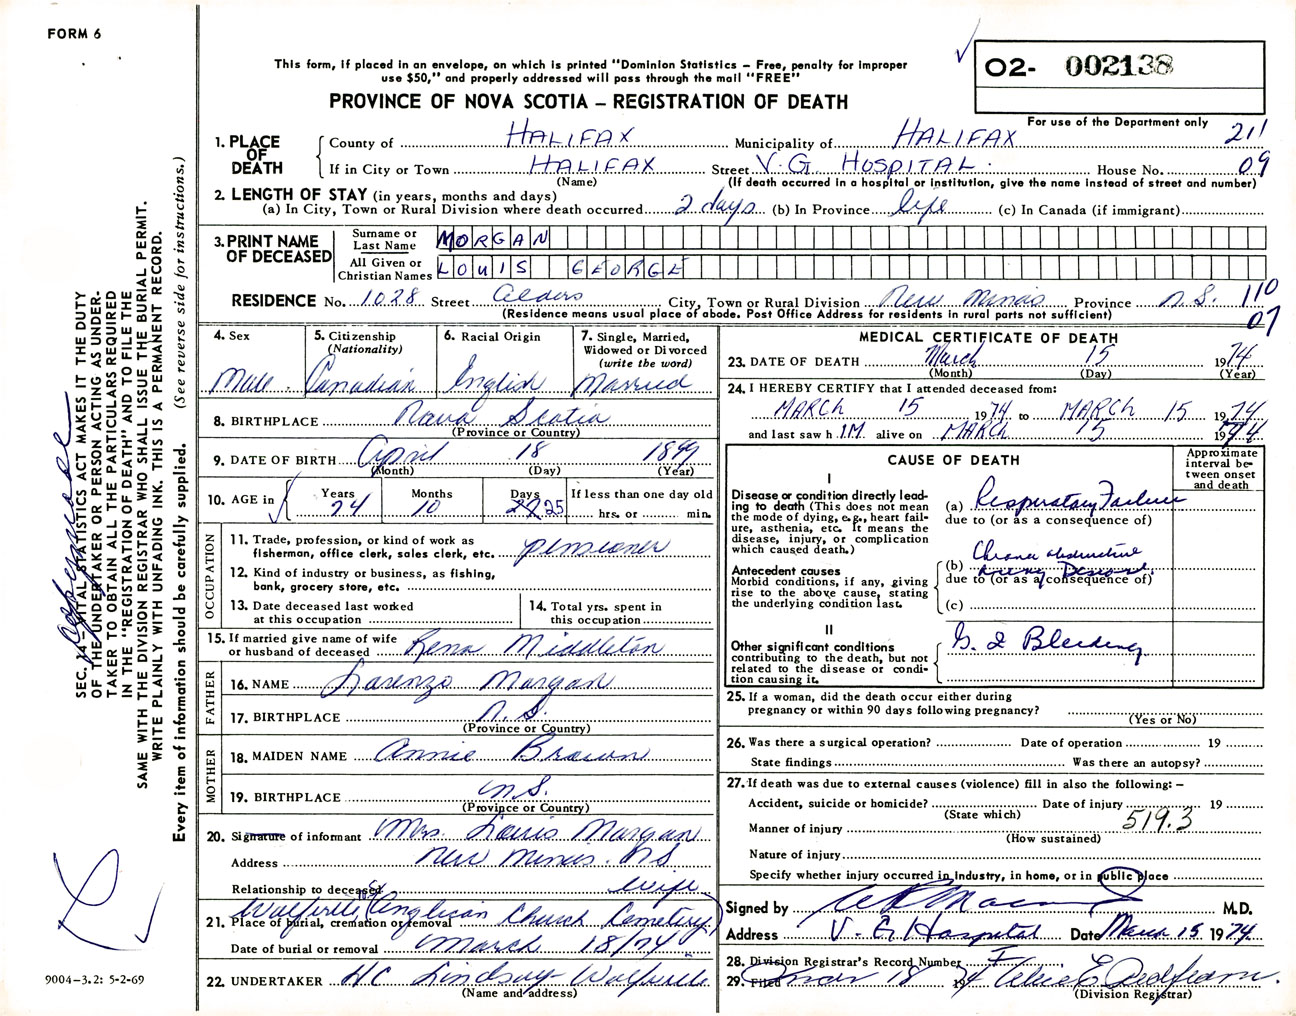 FORM 6
This form, if placed in an envelope, on which is printed "Dominion Statistics – Free, penalty for improper
use $50," and properly addressed will pass through the mail "FREE"
PROVINCE OF NOVA SCOTIA – REGISTRATION OF DEATH
02- 002138
For use of the Department only
211
09
1. PLACE OF DEATH
County of HALIFAX Municipality of HALIFAX
If in City or Town HALIFAX Street V.G. HOSPITAL House No.
(Name) (If death occurred in a hospital or institution, give the name instead of street and number)
2. LENGTH OF STAY (in years, months and days)
(a) In City, Town or Rural Division where death occurred 2 days (b) In Province life (c) In Canada (if immigrant)
3. PRINT NAME OF DECEASED
Surname or Last Name MORGAN
All Given or Christian Names LOUIS GEORGE
RESIDENCE No. 1028 Street Alders City, Town or Rural Division New Minas Province N.S. 110
(Residence means usual place of abode. Post Office Address for residents in rural parts not sufficient)
07
4. Sex
Male
5. Citizenship
(Nationality)
Canadian
6. Racial Origin
English
7. Single, Married,
Widowed or Divorced
(write the word)
Married
8. BIRTHPLACE Nova Scotia
(Province or Country)
9. DATE OF BIRTH April 18 1899
(Month) (Day) (Year)
10. AGE in
Years 74
Months 10
Days 27 25
If less than one day old
hrs. or min.
OCCUPATION
11. Trade, profession, or kind of work as
fisherman, office clerk, sales clerk, etc. pensioner
12. Kind of industry or business, as fishing,
bank, grocery store, etc.
13. Date deceased last worked
at this occupation
14. Total yrs. spent in
this occupation
15. If married give name of wife
or husband of deceased Rena Middleton
FATHER
16. NAME Lorenzo Morgan
17. BIRTHPLACE N.S.
(Province or Country)
MOTHER
18. MAIDEN NAME Annie Brown
19. BIRTHPLACE N.S.
(Province or Country)
20. Signature of informant Mrs. Louis Morgan
Address New Minas. NS
Relationship to deceased wife
Wolfville (Anglican Church Cemetery)
21. Place of burial, cremation or removal
Date of burial or removal March 18/74
22. UNDERTAKER H.C. Lindsay Wolfville
(Name and address)
MEDICAL CERTIFICATE OF DEATH
23. DATE OF DEATH March 15 1974
(Month) (Day) (Year)
24. I HEREBY CERTIFY that I attended deceased from:
MARCH 15 1974 to MARCH 15 1974
and last saw h IM alive on MARCH 15 1974
CAUSE OF DEATH
Approximate
interval be-
tween onset
and death
I
Disease or condition directly lead-
ing to death (This does not mean
the mode of dying, e.g., heart fail-
ure, asthenia, etc. It means the
disease, injury, or complication
which caused death.)
(a) Respiratory Failure
due to (or as a consequence of)
Antecedent causes
Morbid conditions, if any, giving
rise to the above cause, stating
the underlying condition last.
Chronic obstructive
(b) Airway Disease
due to (or as a consequence of)
(c)
II
Other significant conditions
contributing to the death, but not
related to the disease or condi-
tion causing it.
G.I Bleeding
25. If a woman, did the death occur either during
pregnancy or within 90 days following pregnancy?
(Yes or No)
26. Was there a surgical operation? Date of operation 19
State findings Was there an autopsy?
27. If death was due to external causes (violence) fill in also the following: –
Accident, suicide or homicide? Date of injury 19
(State which)
519.3
Manner of injury
(How sustained)
Nature of injury
Specify whether injury occurred in industry, in home, or in public place
Signed by M.D.
Address V.G. Hospital Date March 15 1974
28. Division Registrar's Record Number
29. Filed Mar 18 1974
(Division Registrar)
SEC. 14 VITAL STATISTICS ACT MAKES IT THE DUTY
OF THE UNDERTAKER OR PERSON ACTING AS UNDER-
TAKER TO OBTAIN ALL THE PARTICULARS REQUIRED
IN THE "REGISTRATION OF DEATH" AND TO FILE THE
SAME WITH THE DIVISION REGISTRAR WHO SHALL ISSUE THE BURIAL PERMIT.
WRITE PLAINLY WITH UNFADING INK. THIS IS A PERMANENT RECORD.
Every item of information should be carefully supplied. (See reverse side for instructions.)
9004–3.2: 5-2-69